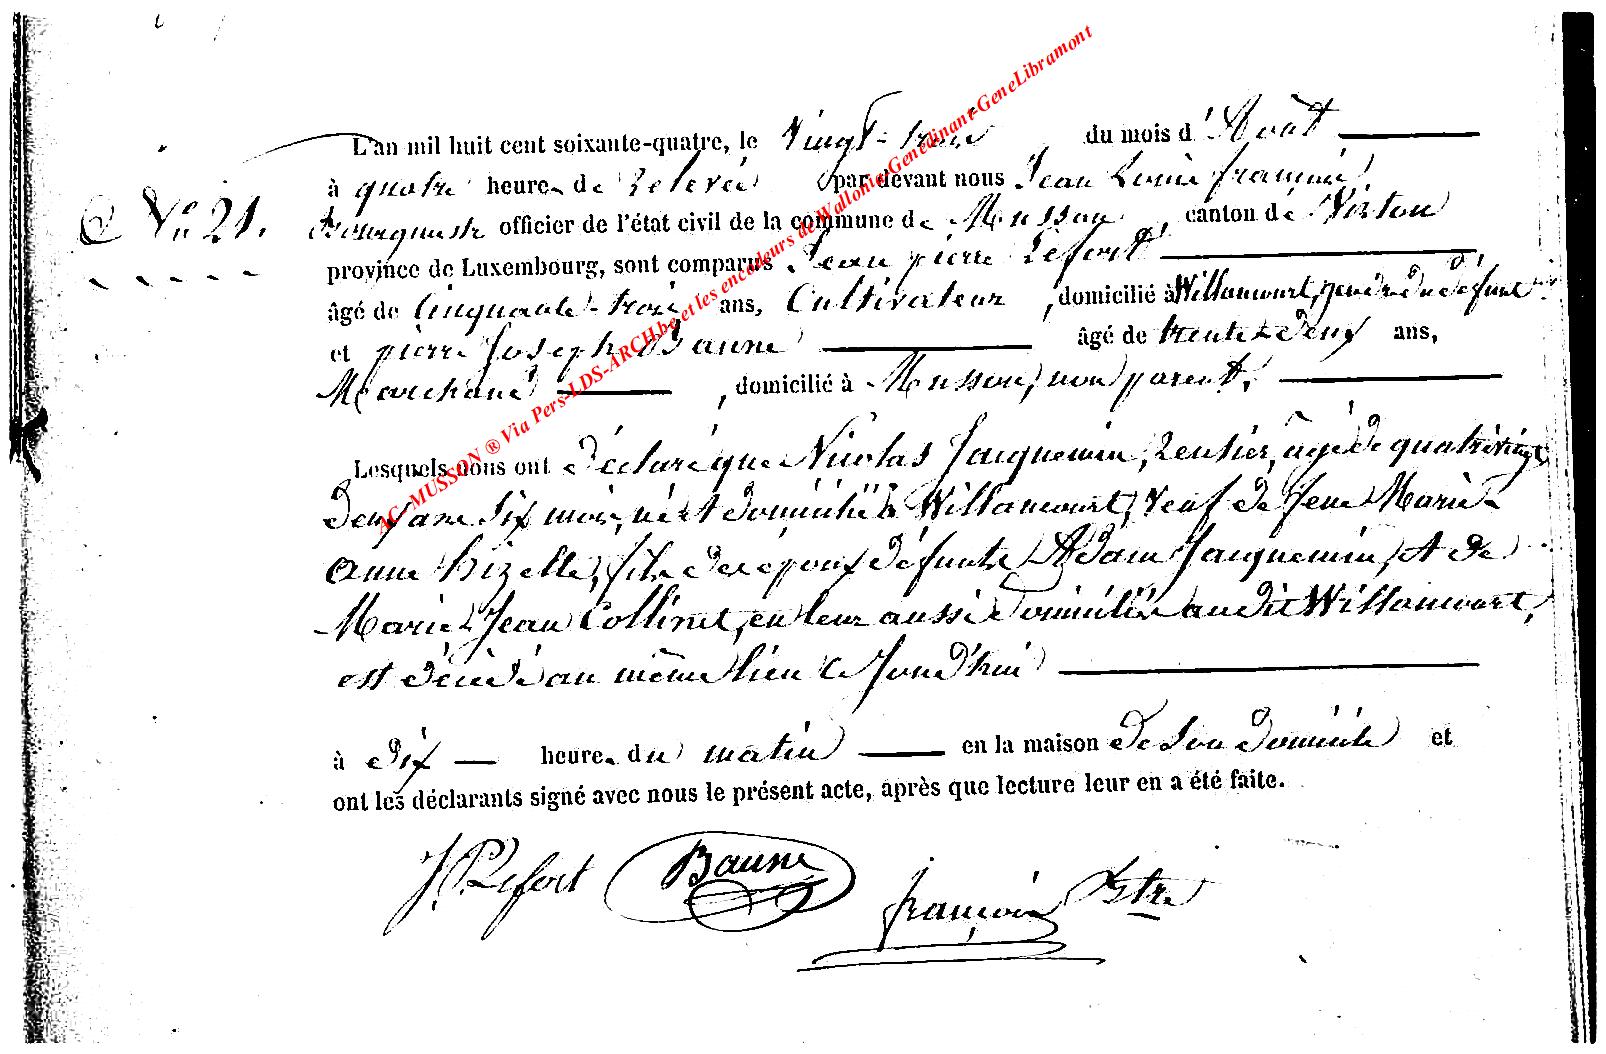 L'an mil huit cent soixante-quatre, le vingt-trois du mois d'Août
à quatre heures de relevée par devant nous Jean Louis françois
N° 21. Bourgmestre officier de l'état civil de la commune de Musson, canton de Virton
province de Luxembourg, sont comparus Jean pierre Lefort
âgé de cinquante-trois ans, Cultivateur, domicilié à Willancourt, gendre du défunt
et pierre Joseph Baune âgé de trente-deux ans,
Marchand, domicilié à Musson, non parent,
Lesquels nous ont déclaré que Nicolas Jacquemin, rentier, âgé de quatrevingt
deux ans six mois, né et domicilié à Willancourt, veuf de feue Marie
Anne hizette, fils des époux défunts Adam Jacquemin, et de
Marie Jean Collinet, en leur aussi domiciliés audit Willancourt,
est décédé au même lieu ce jourd'hui
à dix heures du matin en la maison de son domicile et
ont les déclarants signé avec nous le présent acte, après que lecture leur en a été faite.
J.P. Lefort Baune françois Bstre
AC-MUSSON ® Via Pers-LDS-ARCH.be et les encodeurs de Wallonia-Genedinant-GeneLibramont